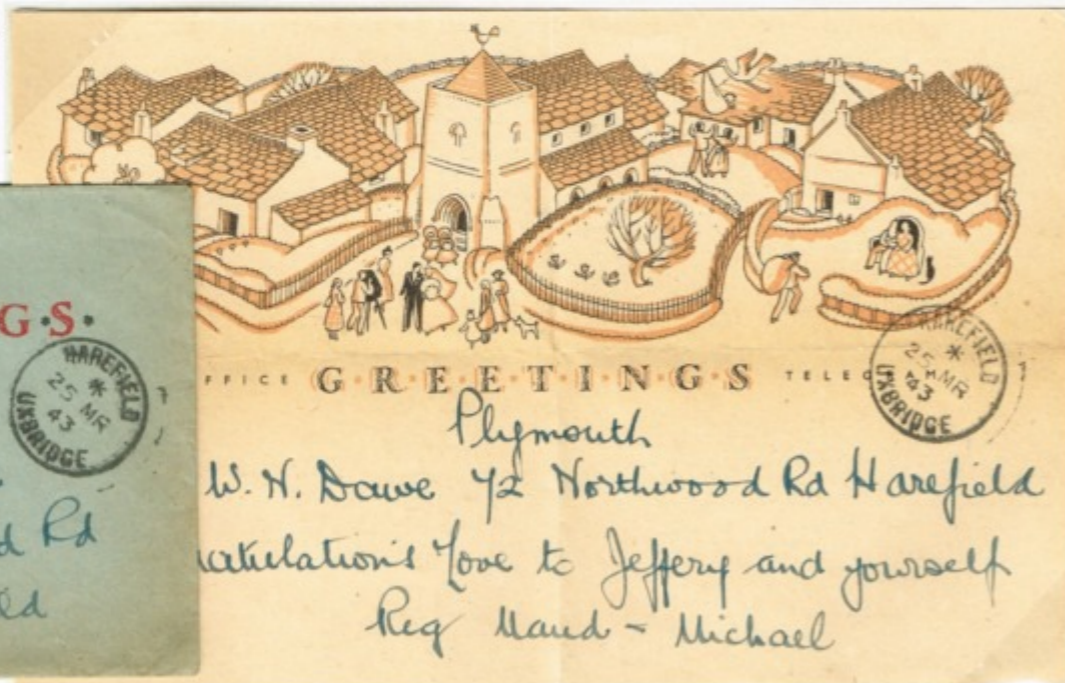 G·S·
HAREFIELD
*
25 MR
43
UXBRIDGE
d Rd
ld
FFICE G·R·E·E·T·I·N·G·S TELEG
HAREFIELD
*
25 MR
43
UXBRIDGE
Plymouth
W. N. Dawe 72 Northwood Rd Harefield
ratulations Love to Jeffery and yourself
Reg Maud - Michael